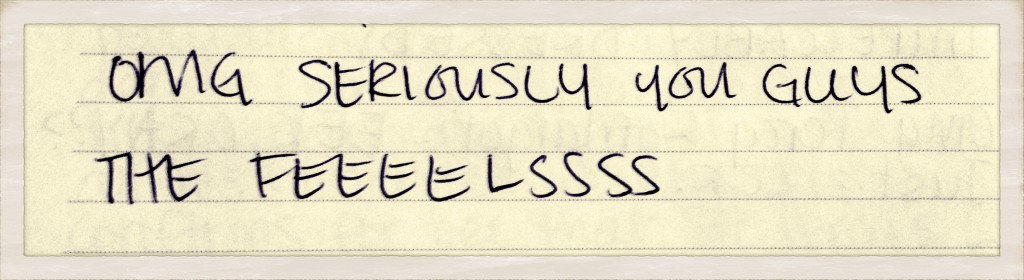 OMG SERIOUSLY YOU GUYS
THE FEEEELSSSS